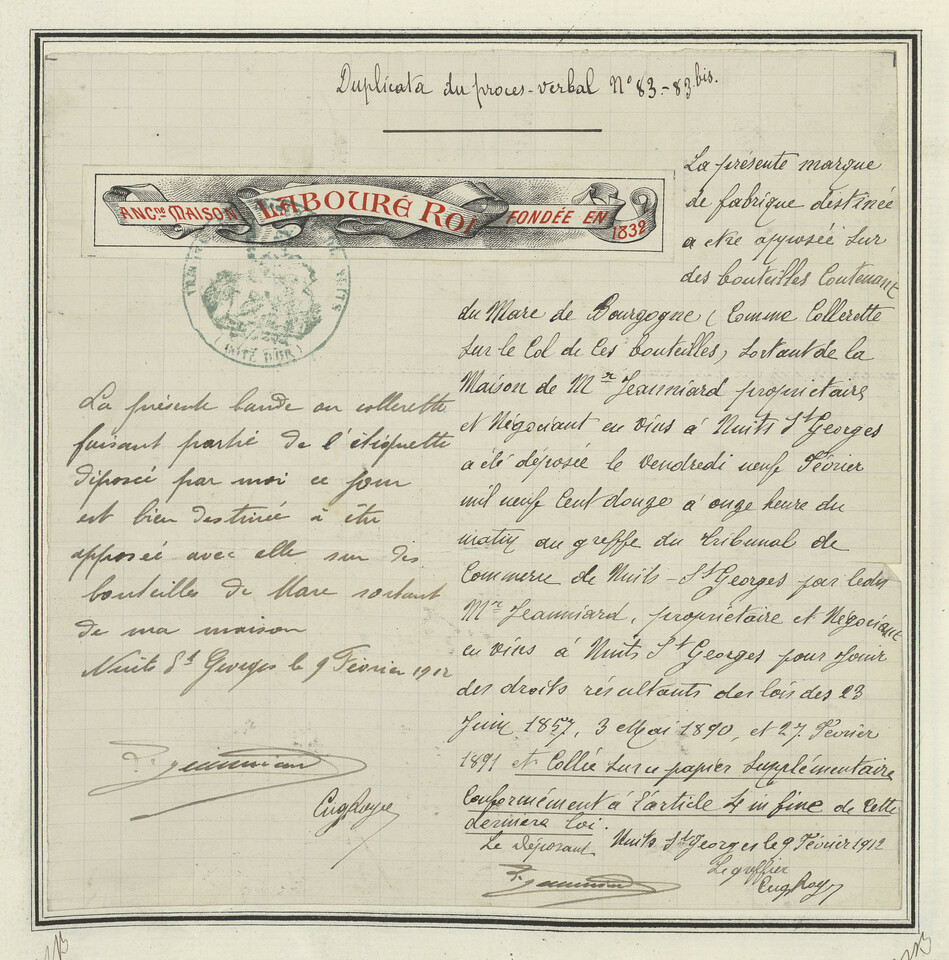 Duplicata du proces-verbal N° 83-83 bis.
ANC.NE MAISON LABOURÉ ROI FONDÉE EN 1832
TRIBUNAL NUITS
(CÔTE D'OR)
La présente bande ou collerette
faisant partie de l'étiquette
déposée par moi ce jour
est bien destinée à être
apposée avec elle sur des
bouteilles de Marc sortant
de ma maison
Nuits St Georges le 9 Février 1912
La présente marque
de fabrique destinée
a etre apposée sur
des bouteilles Contenant
du Marc de Bourgogne (Comme Collerette
sur le Col de Ces bouteilles) sortant de la
Maison de Mr Jeanniard propriétaire
et Négociant en vins à Nuits St Georges
a été déposée le Vendredi neuf Février
mil neuf Cent douze à onze heure du
matin au greffe du tribunal de
Commerce de Nuits-St Georges par ledit
Mr Jeanniard, propriétaire et Négociant
en vins à Nuits St Georges pour Jouir
des droits résultants des lois des 23
Juin 1857, 3 Mai 1890, et 27 Février
1891 et Collée sur ce papier Supplémentaire
Conformément à l'article 4 in fine de Cette
derniere loi.
Le déposant Nuits St Georges le 9 Février 1912
Le greffier